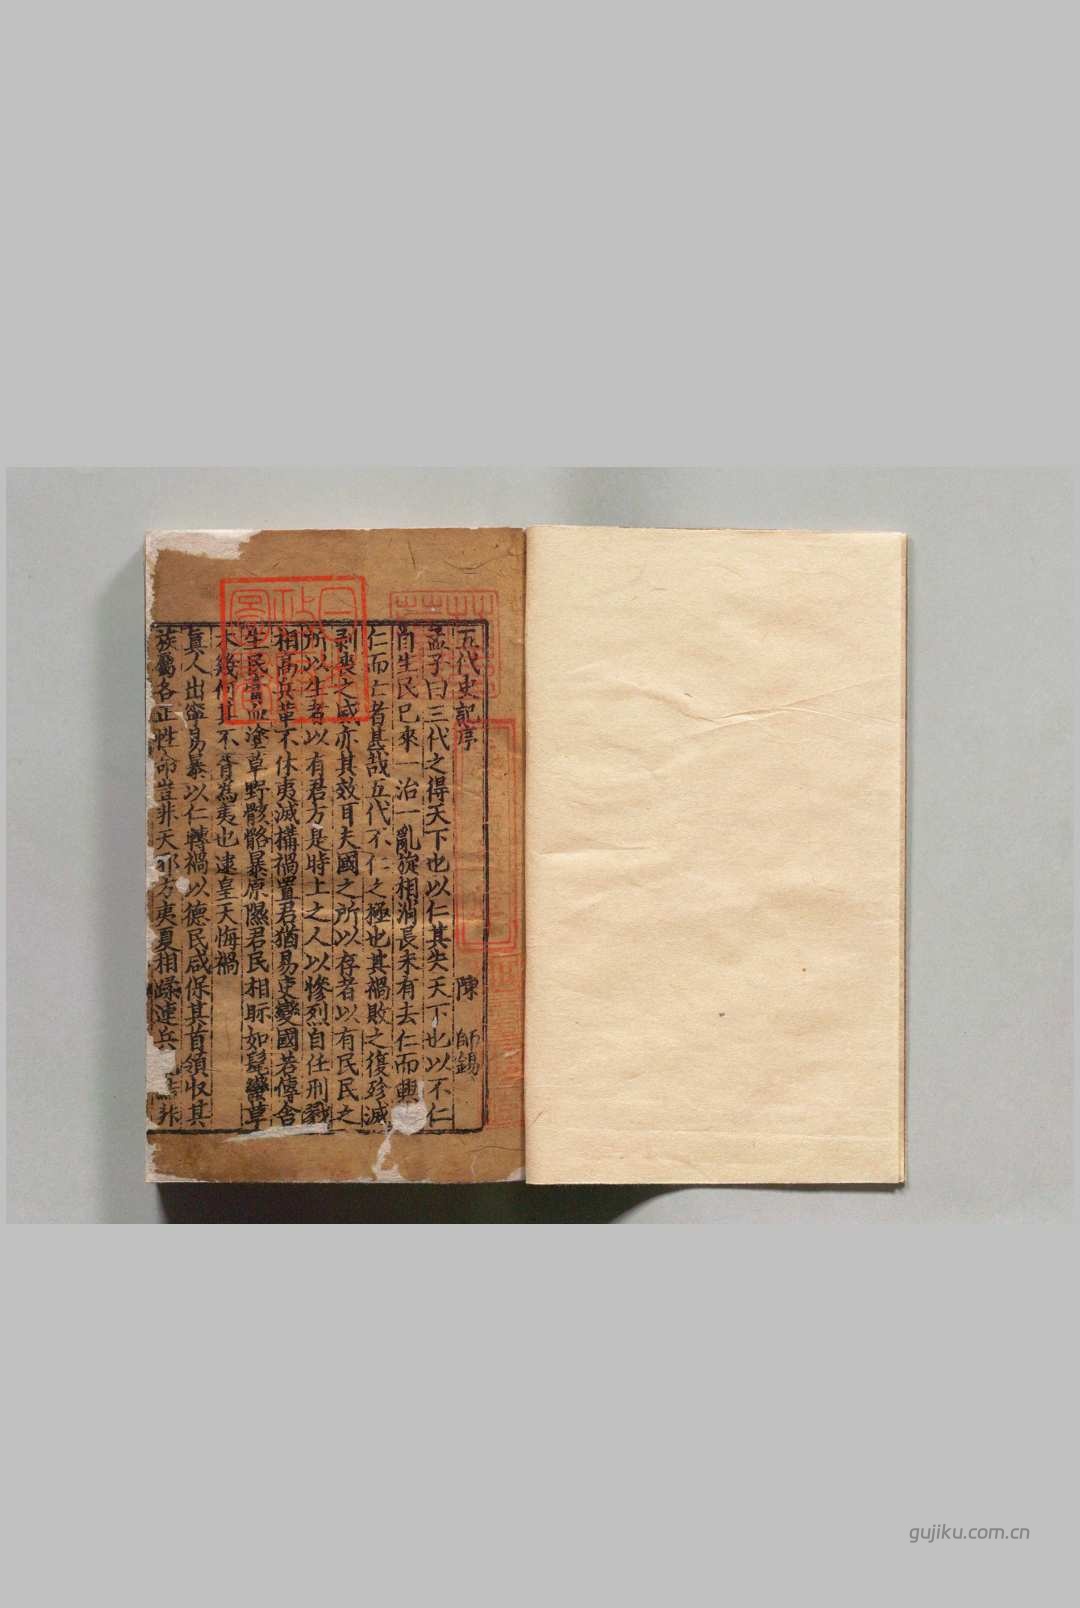 五代史記序
陳師錫
孟子曰三代之得天下也以仁其失天下也以不仁
自生民已來一治一亂旋相消長未有去仁而興
仁而亡者甚哉五代不仁之極也其禍敗之復殄滅
剥喪之威亦其效耳夫國之所以存者以有民民之
所以生者以有君方是時上之人以慘烈自任刑戮
相高兵革不休夷滅構禍置君猶易吏變國若傳舍
生民膏血塗草野骸骼暴原隰君民相眎如髦蠻草
木幾何其不胥為夷也逮皇天悔禍
真人出寧易暴以仁轉禍以德民咸保其首領収其
族屬各正性命豈非天邪方夷夏相蹂連兵
gujiku.com.cn